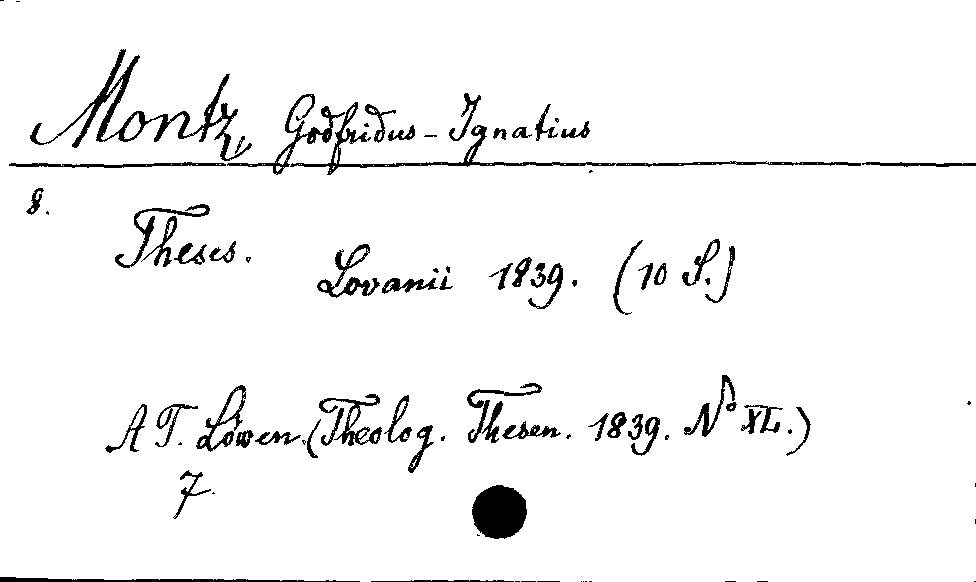 Montz, Godfridus-Ignatius
8.
Theses.
Lovanii 1839. (10 S.)
A T. Löwen. (Theolog. Thesen. 1839. No XL.)
7.